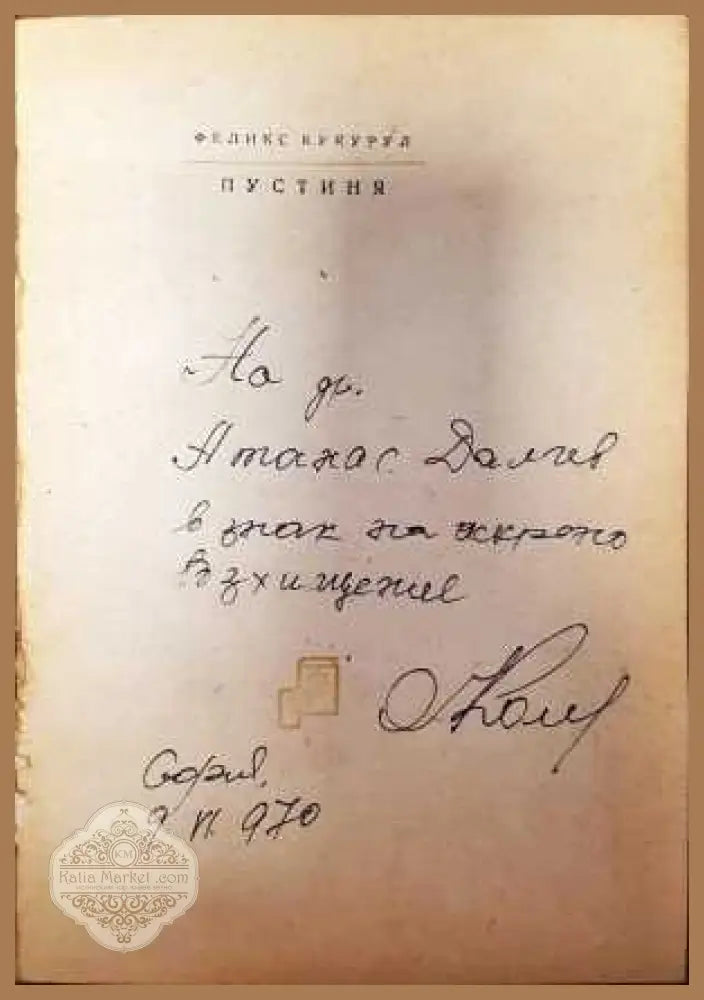 ФЕЛИКС КУКУРУЛ
ПУСТИНЯ
На др.
Атанас Далчев
в знак на искрено
Възхищение
София,
9 VI 970
KM
Katia Market .com